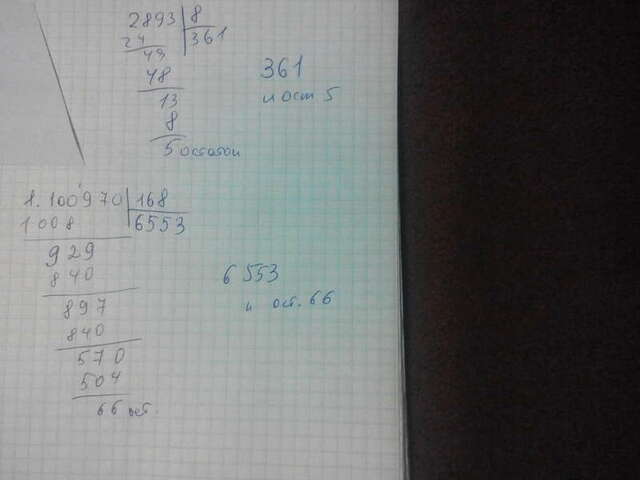 2893 8
24 361
49
48
13
8
5 остаток
361
и ост 5
1.100970 168
1008 6553
929
840
897
840
570
504
66 ост.
6553
и ост. 66